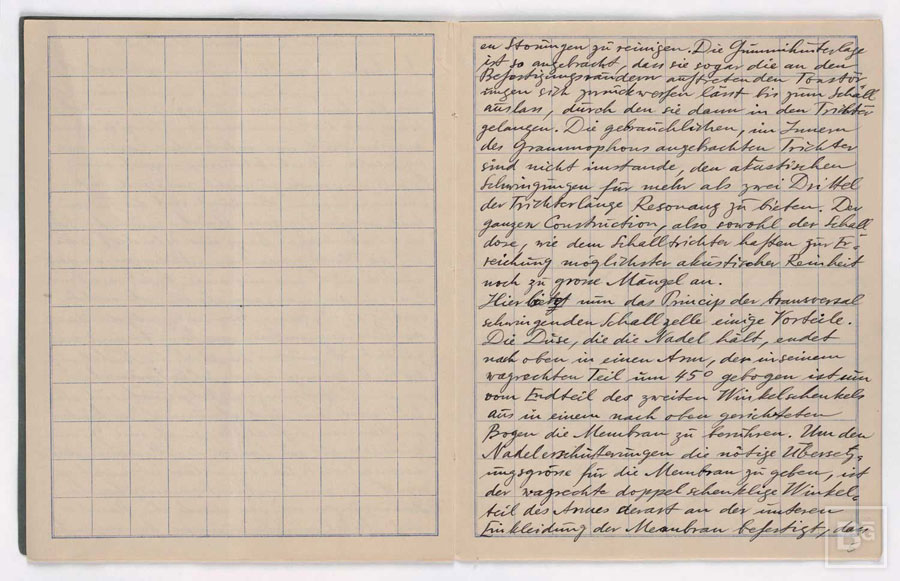 en Störungen zu reinigen. Die Gummihinterlage
ist so angebracht, dass sie sogar die an den
Befestigungsrändern auftretenden Tonstör-
ungen sich zurückwerfen lässt bis zum Schall
auslass, durch den sie dann in den Trichter
gelangen. Die gebräuchlichen, im Innern
des Grammophons angebrachten Trichter
sind nicht imstande, den akustischen
Schwingungen für mehr als zwei Drittel
der Trichterlänge Resonanz zu bieten. Der
ganzen Construction, also sowohl der Schall
dose, wie dem Schalltrichter haften zur Er-
reichung möglichster akustischer Reinheit
noch zu grosse Mängel an.
Hier bietet nun das Princip der transversal
schwingenden Schallzelle einige Vorteile.
Die Düse, die die Nadel hält, endet
nach oben in einen Arm, der in seinem
wagrechten Teil um 45° gebogen ist um
vom Endteil des zweiten Winkelschenkels
aus in einem nach oben gerichteten
Bogen die Membran zu berühren. Um den
Nadelerschütterungen die nötige Übersetz-
ungsgrösse für die Membran zu geben, ist
der wagrechte doppelschenklige Winkel-
teil des Armes derart an der unteren
Einkleidung der Membran befestigt, dass